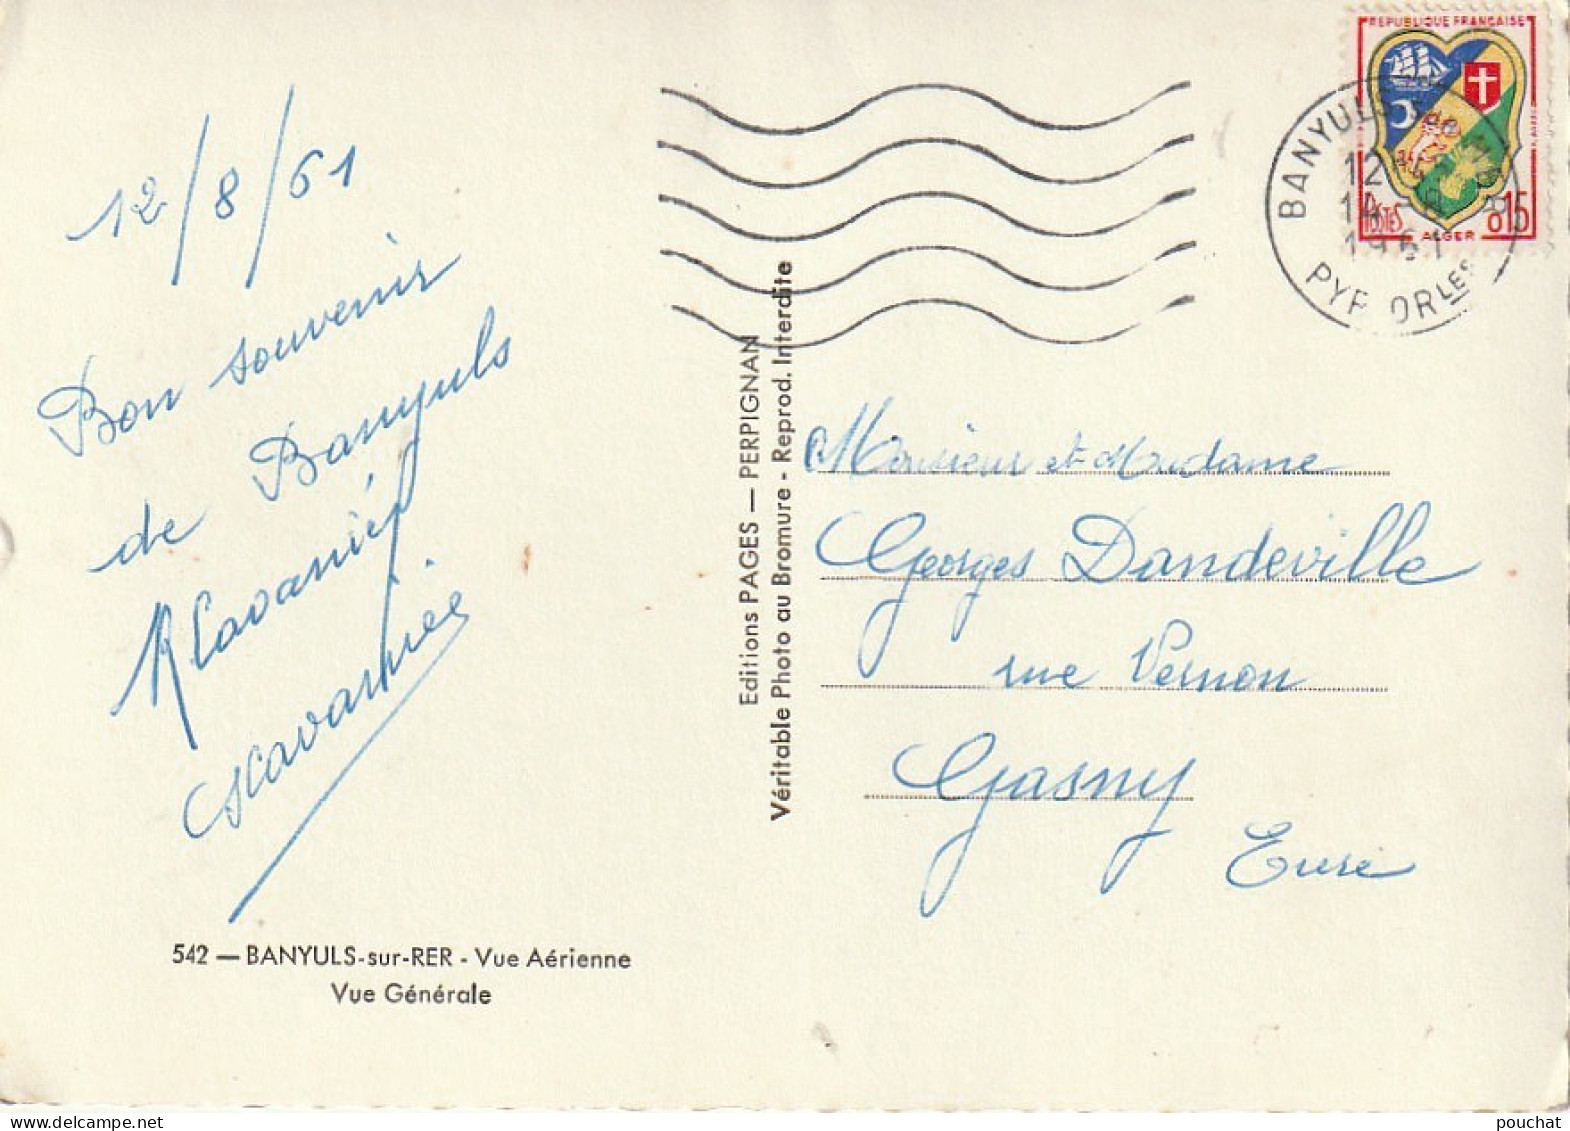 12/8/61
Bon souvenir
de Banyuls
542 — BANYULS-sur-RER - Vue Aérienne
Vue Générale
Editions PAGES — PERPIGNAN
Véritable Photo au Bromure - Reprod. Interdite
REPUBLIQUE FRANÇAISE
POSTES
0,15
ALGER
BANYULS
12
14 - 8
1961
PYR. ORLES
Monsieur et Madame
Georges Dandeville
rue Vernon
Gasny
Eure
pouchat